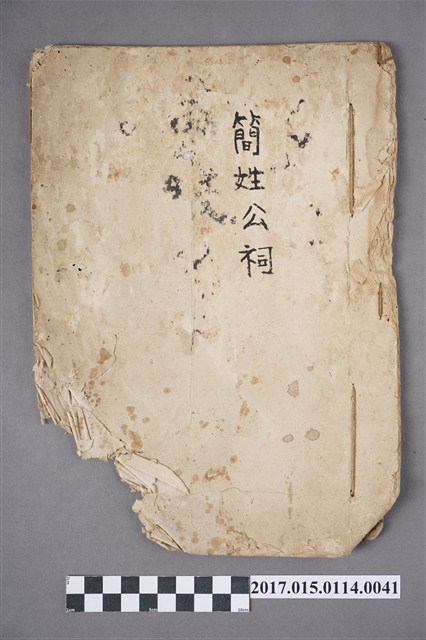 簡姓公祠
2017.015.0114.0041